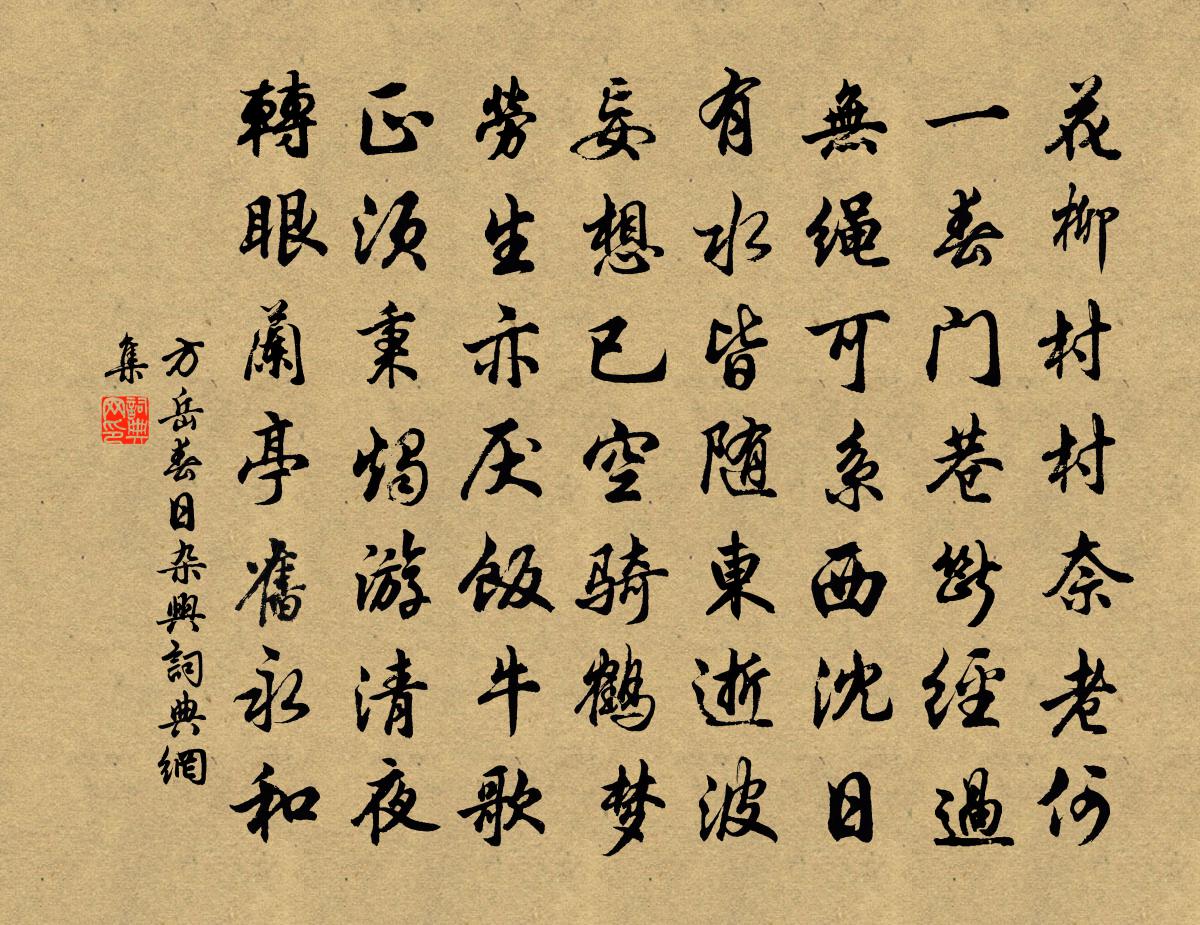 花柳村村奈老何
一春门巷断經過
無绳可系西沈日
有水皆随東逝波
妄想已空骑鹤梦
勞生亦厌飯牛歌
正须秉烛游清夜
轉眼蘭亭舊永和
方岳春日杂興詞典網
集
詞典网印